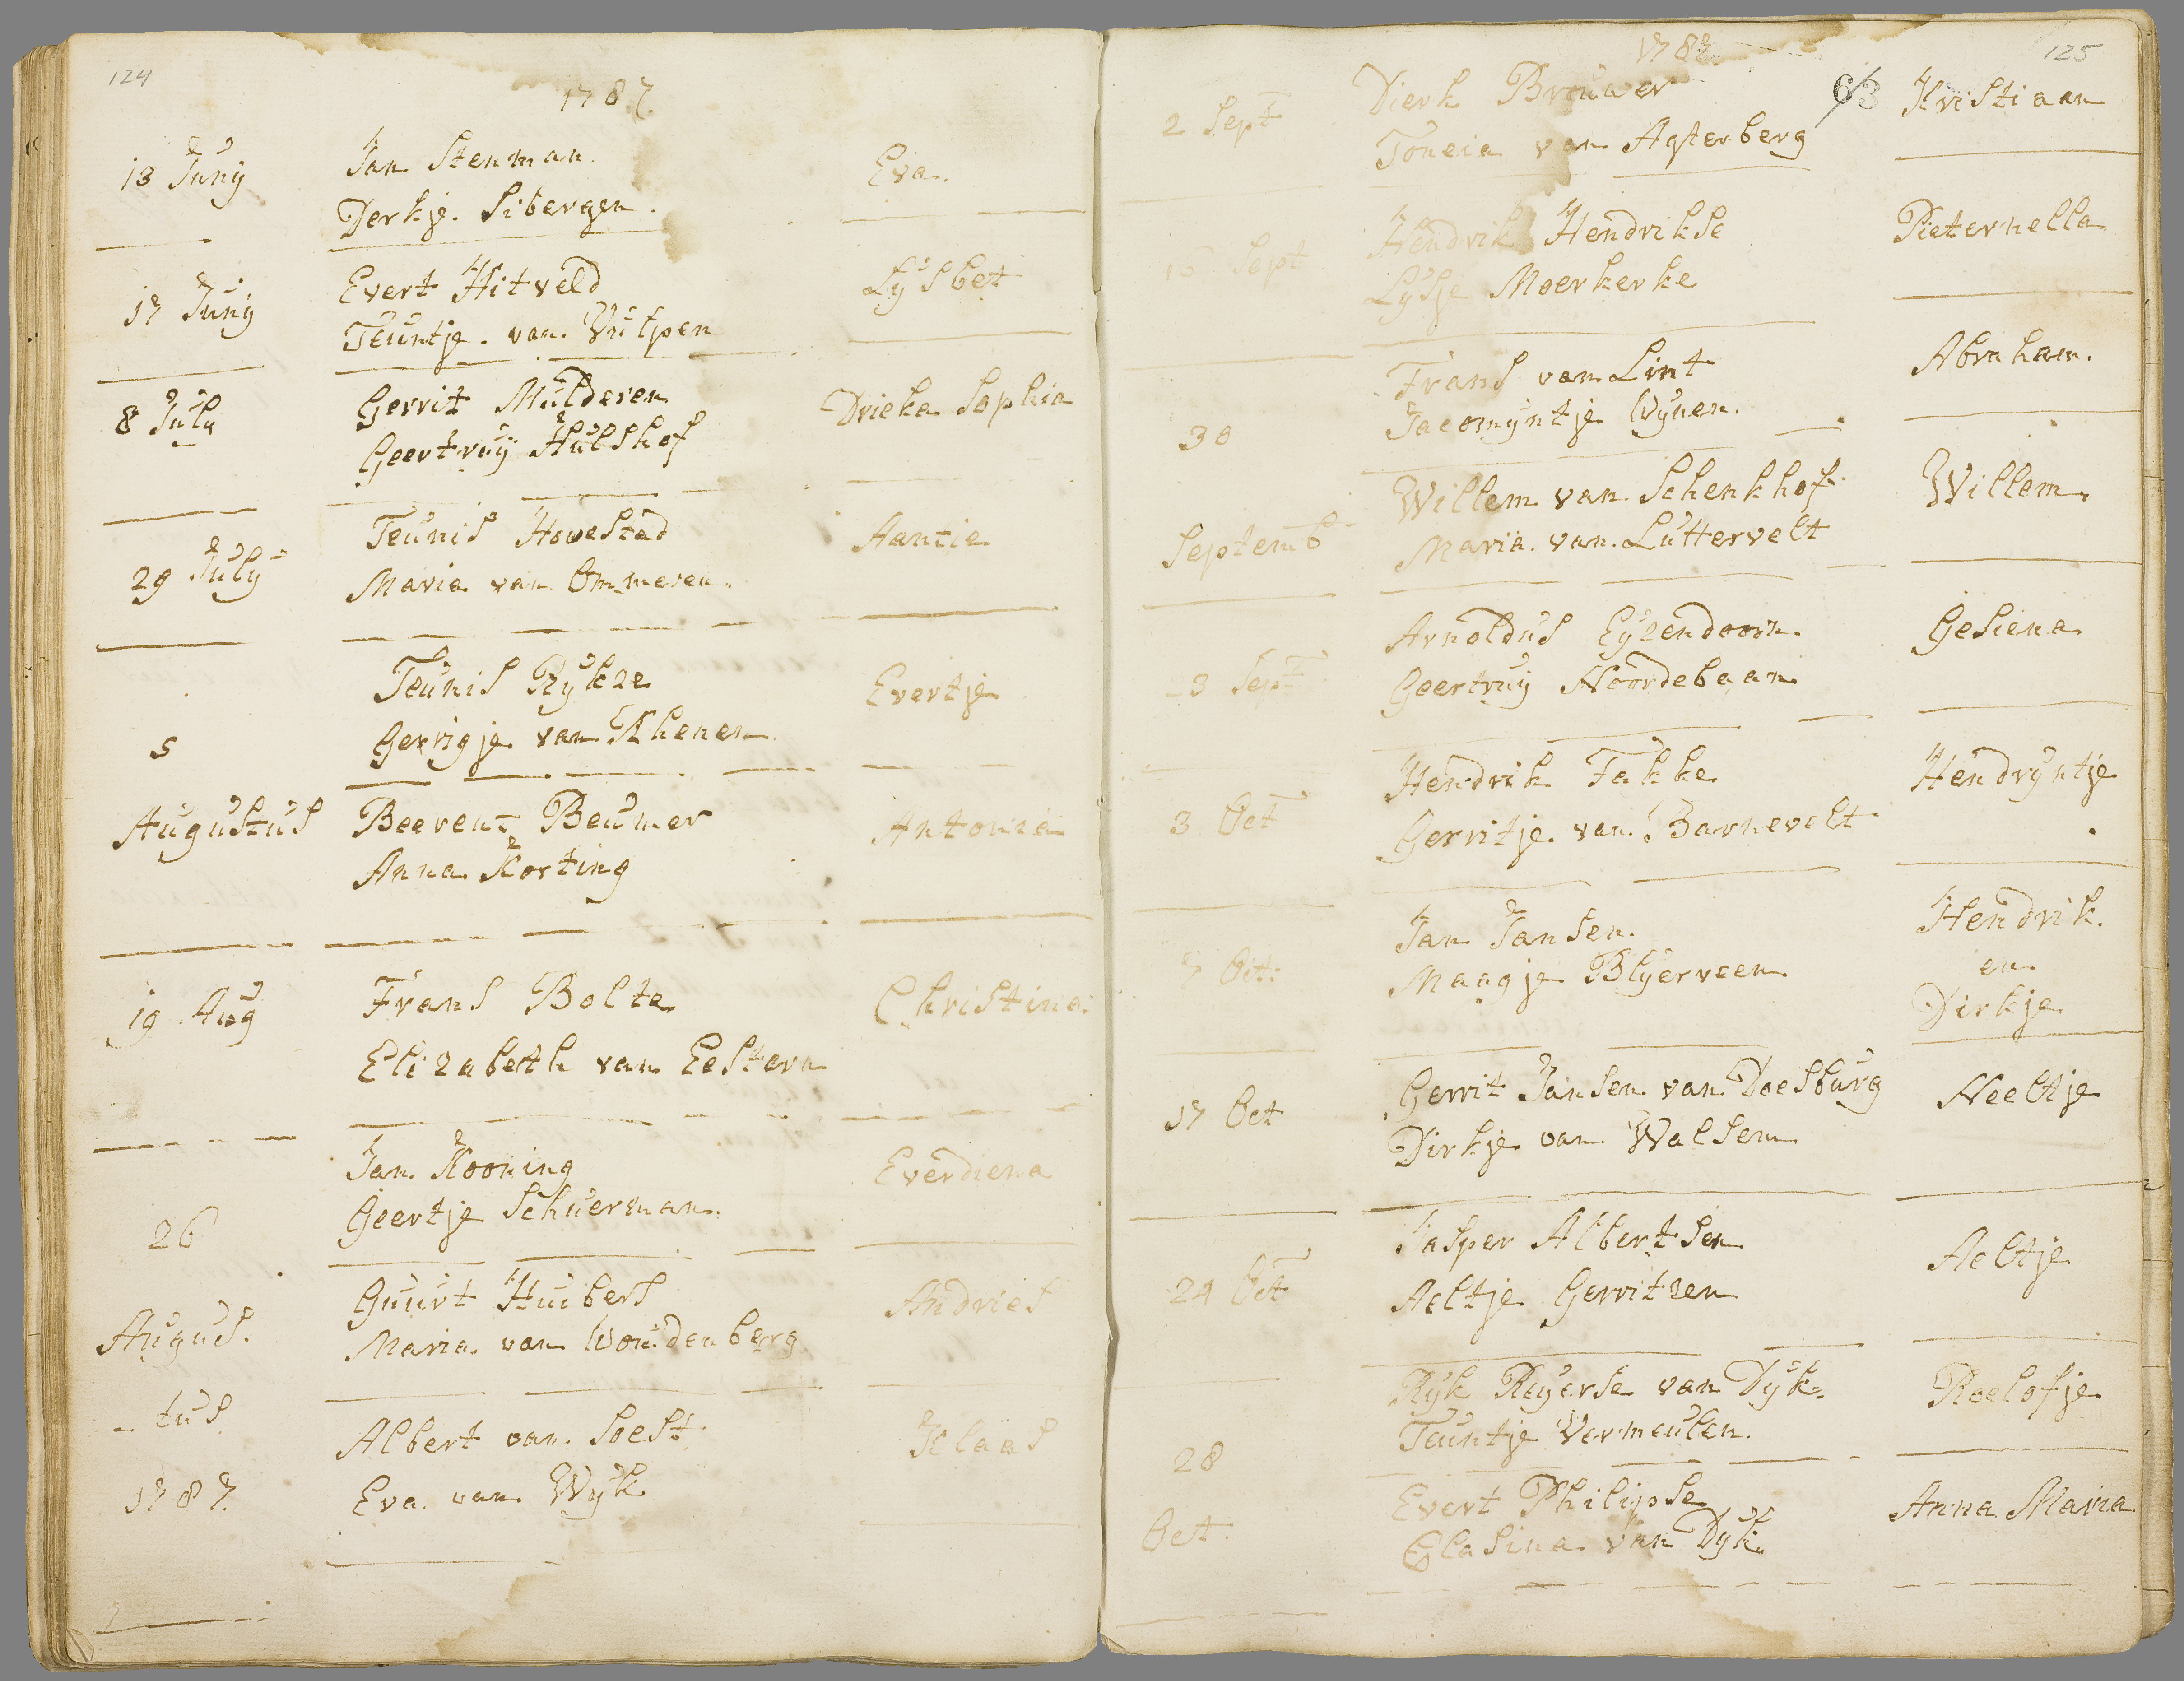 124
1787.
13 Juny
Jan Stenman.
Derkje. Sibergen.
Eva.
17 Juny
Evert Hitveld
Teuntje. van. Vulpen
Lysbet
8 July
Gerrit Mulderen
Geertruy Hulshof
Drieka Sophia
29 July
Teunis Hovestad
Maria van Ommeren.
Aantie
5
Teunis Rykze
Gerrigje van Rhenen
Evertje
Augustus
Beerent Beumer
Anna Korting
Antonia
19 Aug
Frans Bolte
Elizabeth van Eestern
Christina.
26
Jan. Kooning
Geertje Schuerman.
Everdiena
Guurt Huibers
Maria. van Woudenberg
Andries
Augus.
tus
Albert van. Soest
Eva. van Wyk
Klaas
1787.
125
1787.
63
2 Sept
Dierk Brouwer
Toneia van Agterberg
Kristiaan
16 Sept
Hendrik Hendrikse
Lysje Moerkerke
Pieternella
30
Frans van Lint
Jacomyntje Wynen.
Abraham.
Septemb
Willem van Schenkhof
Maria. van. Luttervelt
Willem.
23 Sept
Arnoldus Eyzendoorn.
Geertruy Noordebaan
Gesiena
3 Oct
Hendrik Fakke
Gerritje van. Barnevelt
Hendryntje
7 Oct:
Jan Jansen.
Maagje Blyerveen
Hendrik.
en
Dirkje
17 Oct
Gerrit Jansen van Doesburg
Dirkje van Walsem
Neeltje
24 Oct
Jasper Albertsen
Aeltje Gerritzen
Aeltje
28
Ryk Reyerse van Dyk.
Teuntje Vermeulen.
Roelofje
Oct.
Evert Philipse
Clasina van Dyk.
Anna Maria